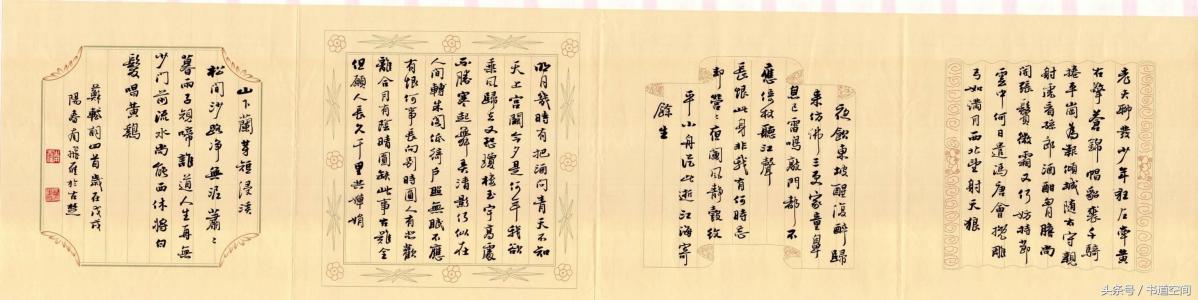 老夫聊發少年狂左牽黃
右擎蒼錦帽貂裘千騎
捲平岡為報傾城隨太守親
射虎看孫郎酒酣胸膽尚
開張鬢微霜又何妨持節
雲中何日遣馮唐會挽雕
弓如滿月西北望射天狼
夜飲東坡醒復醉歸
來仿佛三更家童鼻
息已雷鳴敲門都不
應倚杖聽江聲
長恨此身非我有何時忘
卻營〻夜闌風靜縠紋
平小舟從此逝江海寄
餘生
明月幾時有把酒問青天不知
天上宮闕今夕是何年我欲
乘風歸去又恐瓊樓玉宇高處
不勝寒起舞弄清影何似在
人間轉朱閣低綺戶照無眠不應
有恨何事長向別時圓人有悲歡
離合月有陰晴圓缺此事古難全
但願人長久千里共嬋娟
山下蘭芽短浸溪
松間沙路淨無泥蕭〻
暮雨子規啼誰道人生再無
少門前流水尚能西休將白
髮唱黃雞
蘇軾詞四首歲在戊戌
陽春南飛雁於古燕
头条号 / 书道空间